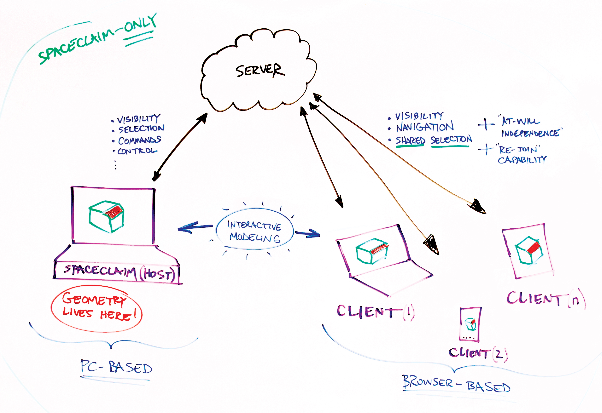 SPACECLAIM-ONLY
SERVER
• VISIBILITY
• SELECTION
• COMMANDS
• CONTROL
⋮
• VISIBILITY
• NAVIGATION
• SHARED SELECTION
+ "AT-WILL
INDEPENDENCE"
+ "RE-JOIN"
CAPABILITY
INTERACTIVE
MODELING
SPACECLAIM (HOST)
GEOMETRY
LIVES HERE!
PC-BASED
CLIENT (1)
CLIENT (2)
CLIENT (n)
BROWSER-BASED